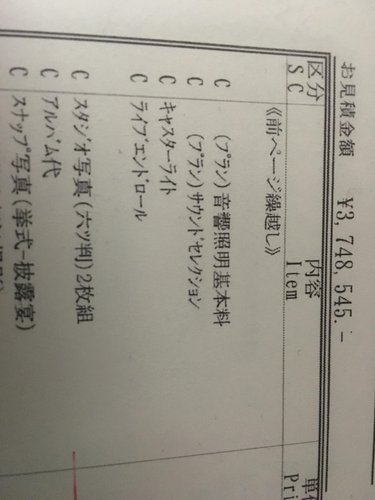 お見積金額 ¥3,748,545.-
区分 内容
SC Item Pri
《前ページ繰越し》
C (プラン)音響照明基本料
C (プラン)サウンドセレクション
C キャスターライト
C ライブエンドロール
C スタジオ写真(六ッ判)2枚組
C アルバム代
C スナップ写真(挙式-披露宴)